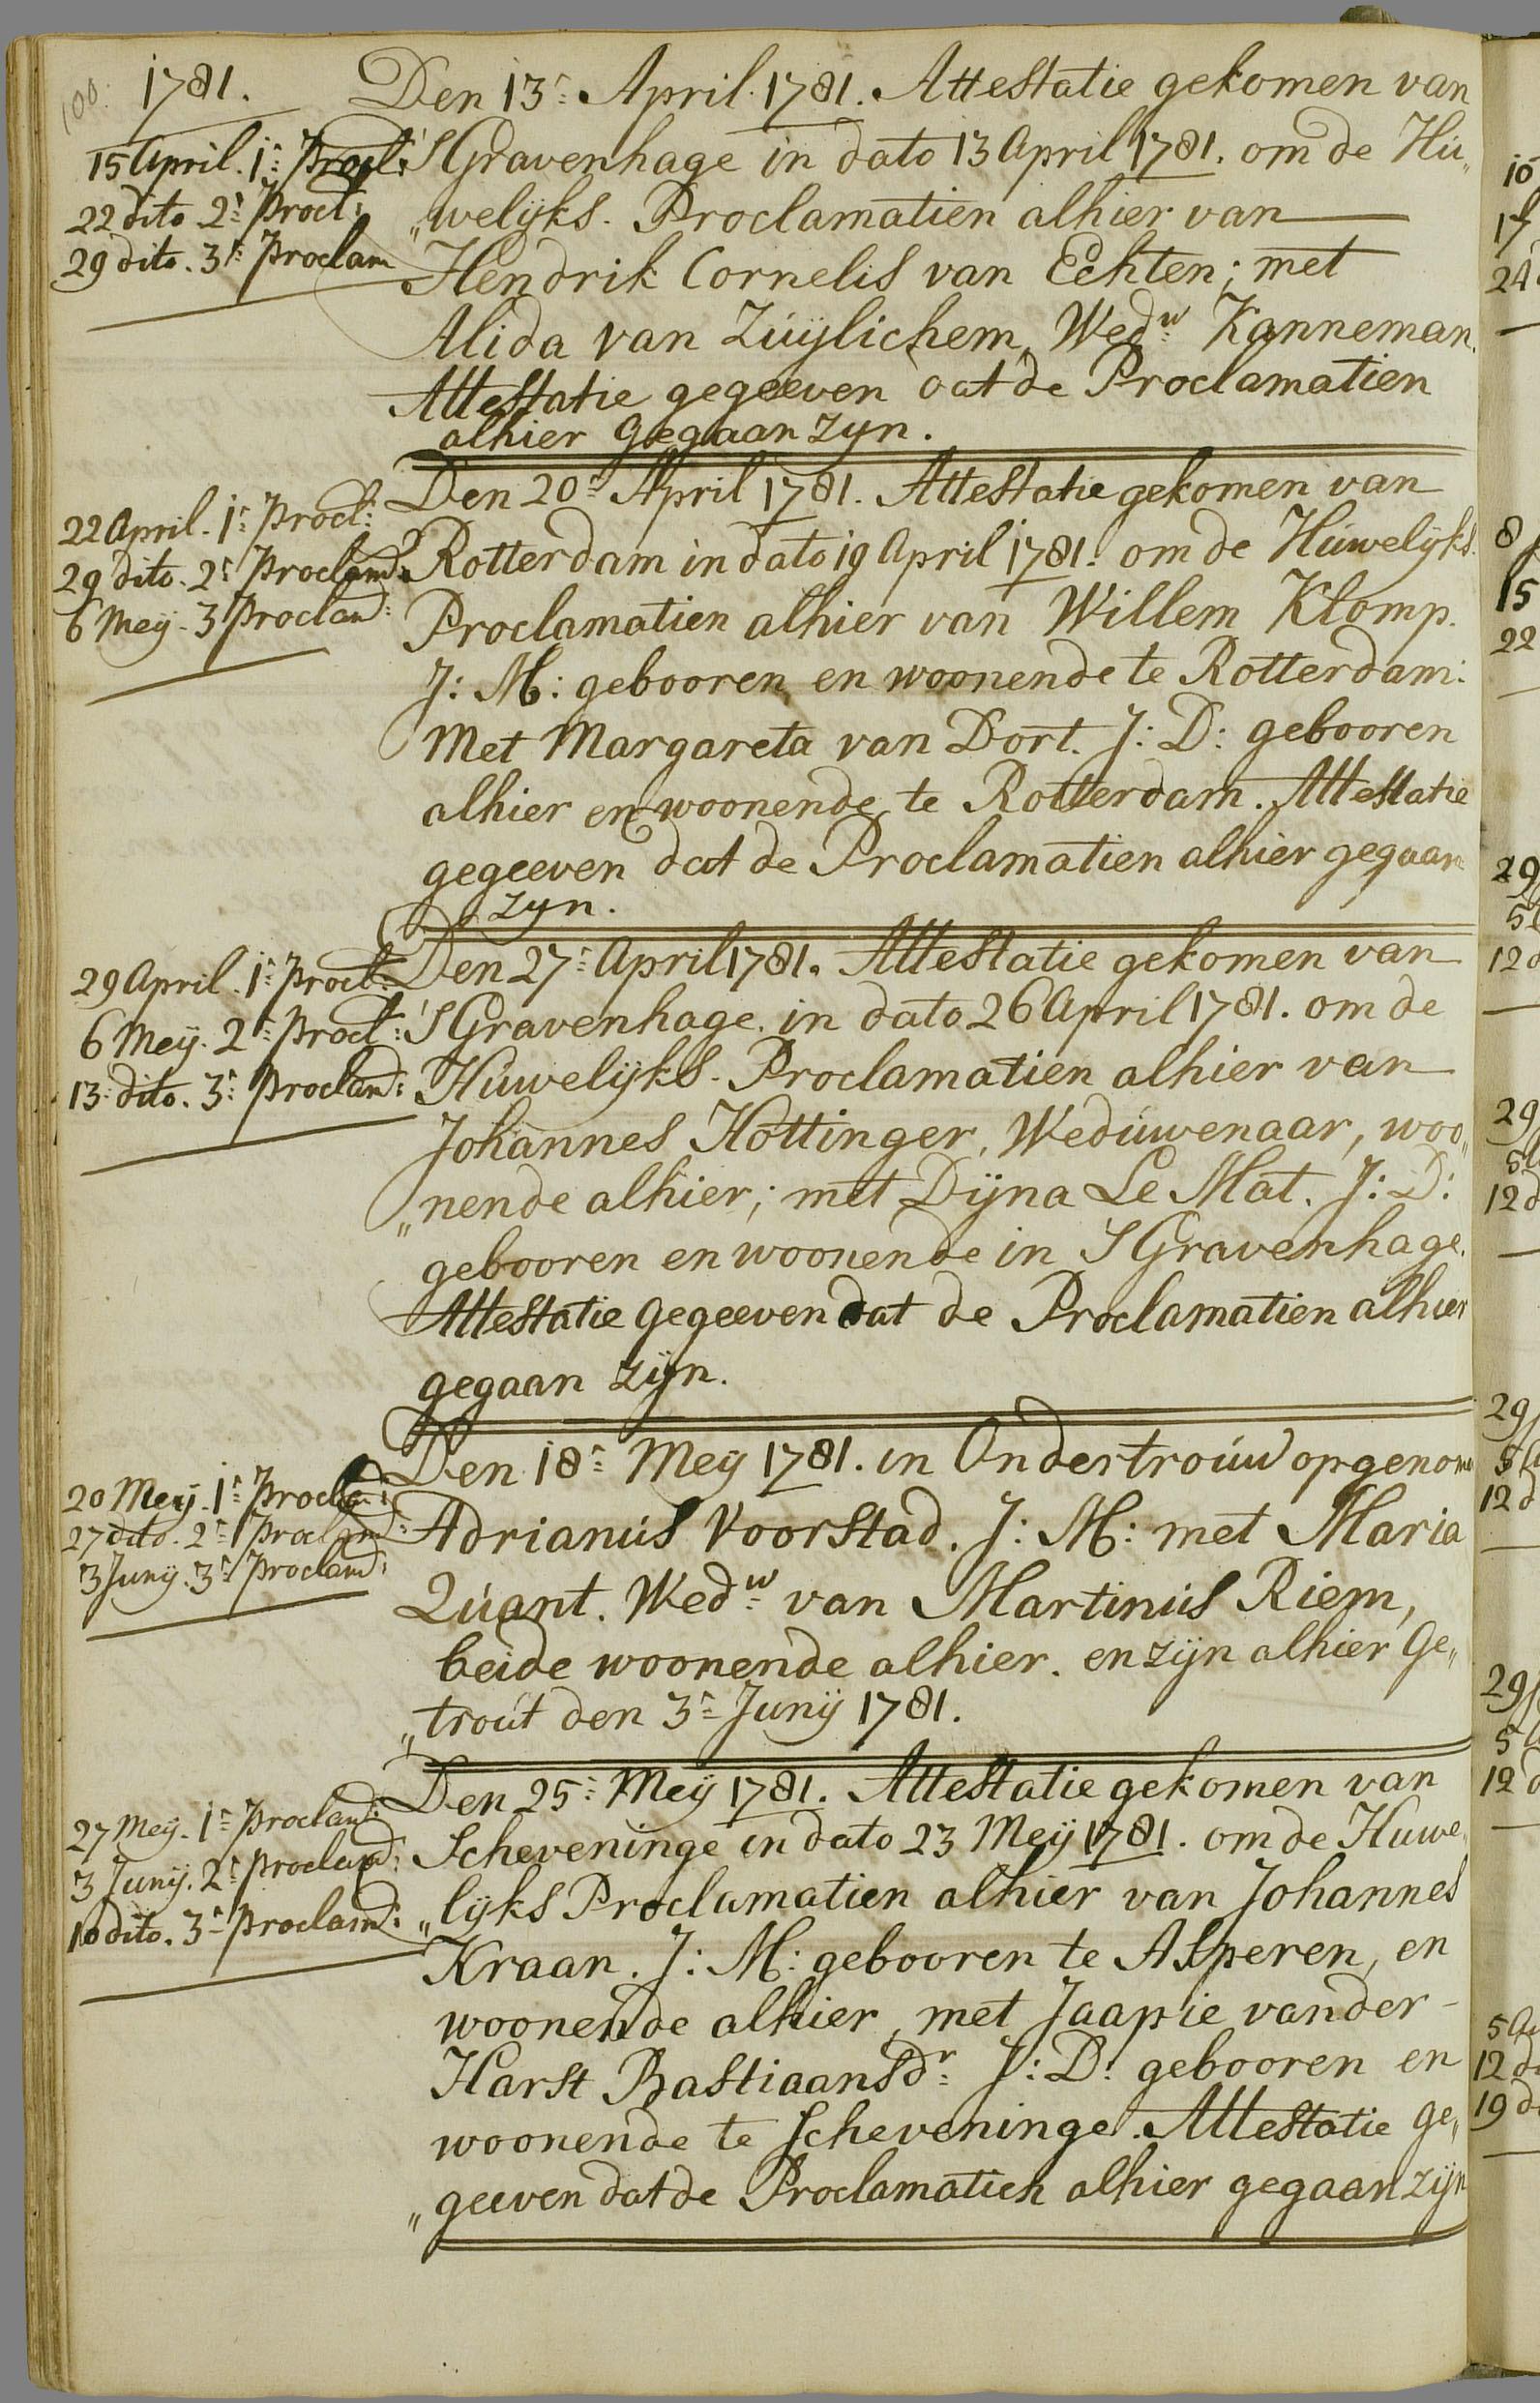 100.
1781.
15 April. 1e Procl:
22 dito. 2e Procl:
29 dito. 3e Proclam
Den 13e April. 1781. Attestatie gekomen van
'SGravenhage in dato 13 April 1781. om de Hu„
„welijks. Proclamatien alhier van
Hendrik Cornelis van Echten; met
Alida van Zuijlichem, Wedw Kanneman.
Attestatie gegeeven dat de Proclamatien
alhier gegaan zyn.
22 April. 1e Procl:
29 dito. 2e Proclamd:
6 Meij. 3 Proclamd:
Den 20e April 1781. Attestatie gekomen van
Rotterdam in dato 19 April 1781. om de Huwelijks.
Proclamatien alhier van Willem Klomp.
J: M: gebooren en woonende te Rotterdam:
Met Margareta van Dort. J: D: gebooren
alhier en woonende te Rotterdam. Attestatie
gegeeven dat de Proclamatien alhier gegaan
zyn.
29 April. 1e Procl:
6 Meij. 2e Procl:
13 dito. 3e Proclamd:
Den 27e April 1781. Attestatie gekomen van
'SGravenhage. in dato 26 April 1781. om de
Huwelijks. Proclamatien alhier van
Johannes Hottinger, Weduwenaar, woo„
„nende alhier; met Dijna Le Mat. J: D:
gebooren en woonende in 'SGravenhage.
Attestatie gegeeven dat de Proclamatien alhier
gegaan zijn.
20 Meij. 1e Proclam:
27 dito. 2e Proclamd:
3 Junij. 3e Proclamd:
Den 18e Meij 1781. in Ondertrouw opgenomen
Adrianus Voorstad. J: M: met Maria
Quant. Wedw van Martinus Riem,
beide woonende alhier. en zijn alhier Ge„
„trout den 3e Junij 1781.
27 Meij. 1e Proclamd:
3 Junij. 2e Proclamd:
10 dito. 3e Proclamd:
Den 25e Meij 1781. Attestatie gekomen van
Scheveninge in dato 23 Meij 1781. om de Huwe„
„lijks Proclamatien alhier van Johannes
Kraan. J: M: gebooren te Asperen, en
woonende alhier, met Jaapie vander-
Harst Bastiaansdr J: D: gebooren en
woonende te Scheveninge. Attestatie ge„
„geeven dat de Proclamatien alhier gegaan zijn